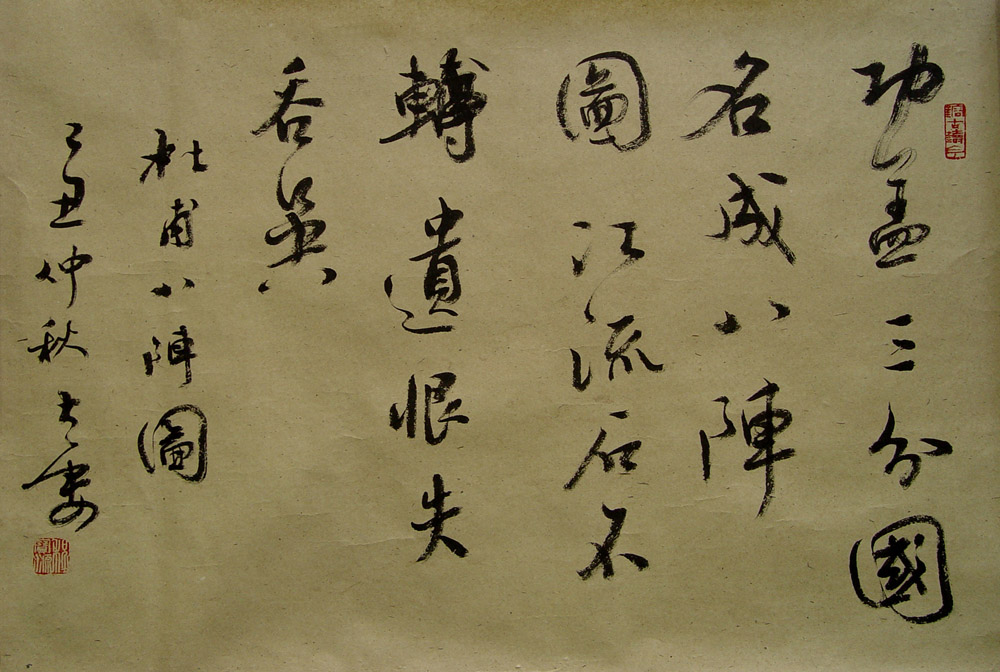 功盖三分國
名成八陣
圖江流石不
轉遺恨失
吞吴
杜甫八陣圖
己丑仲秋士